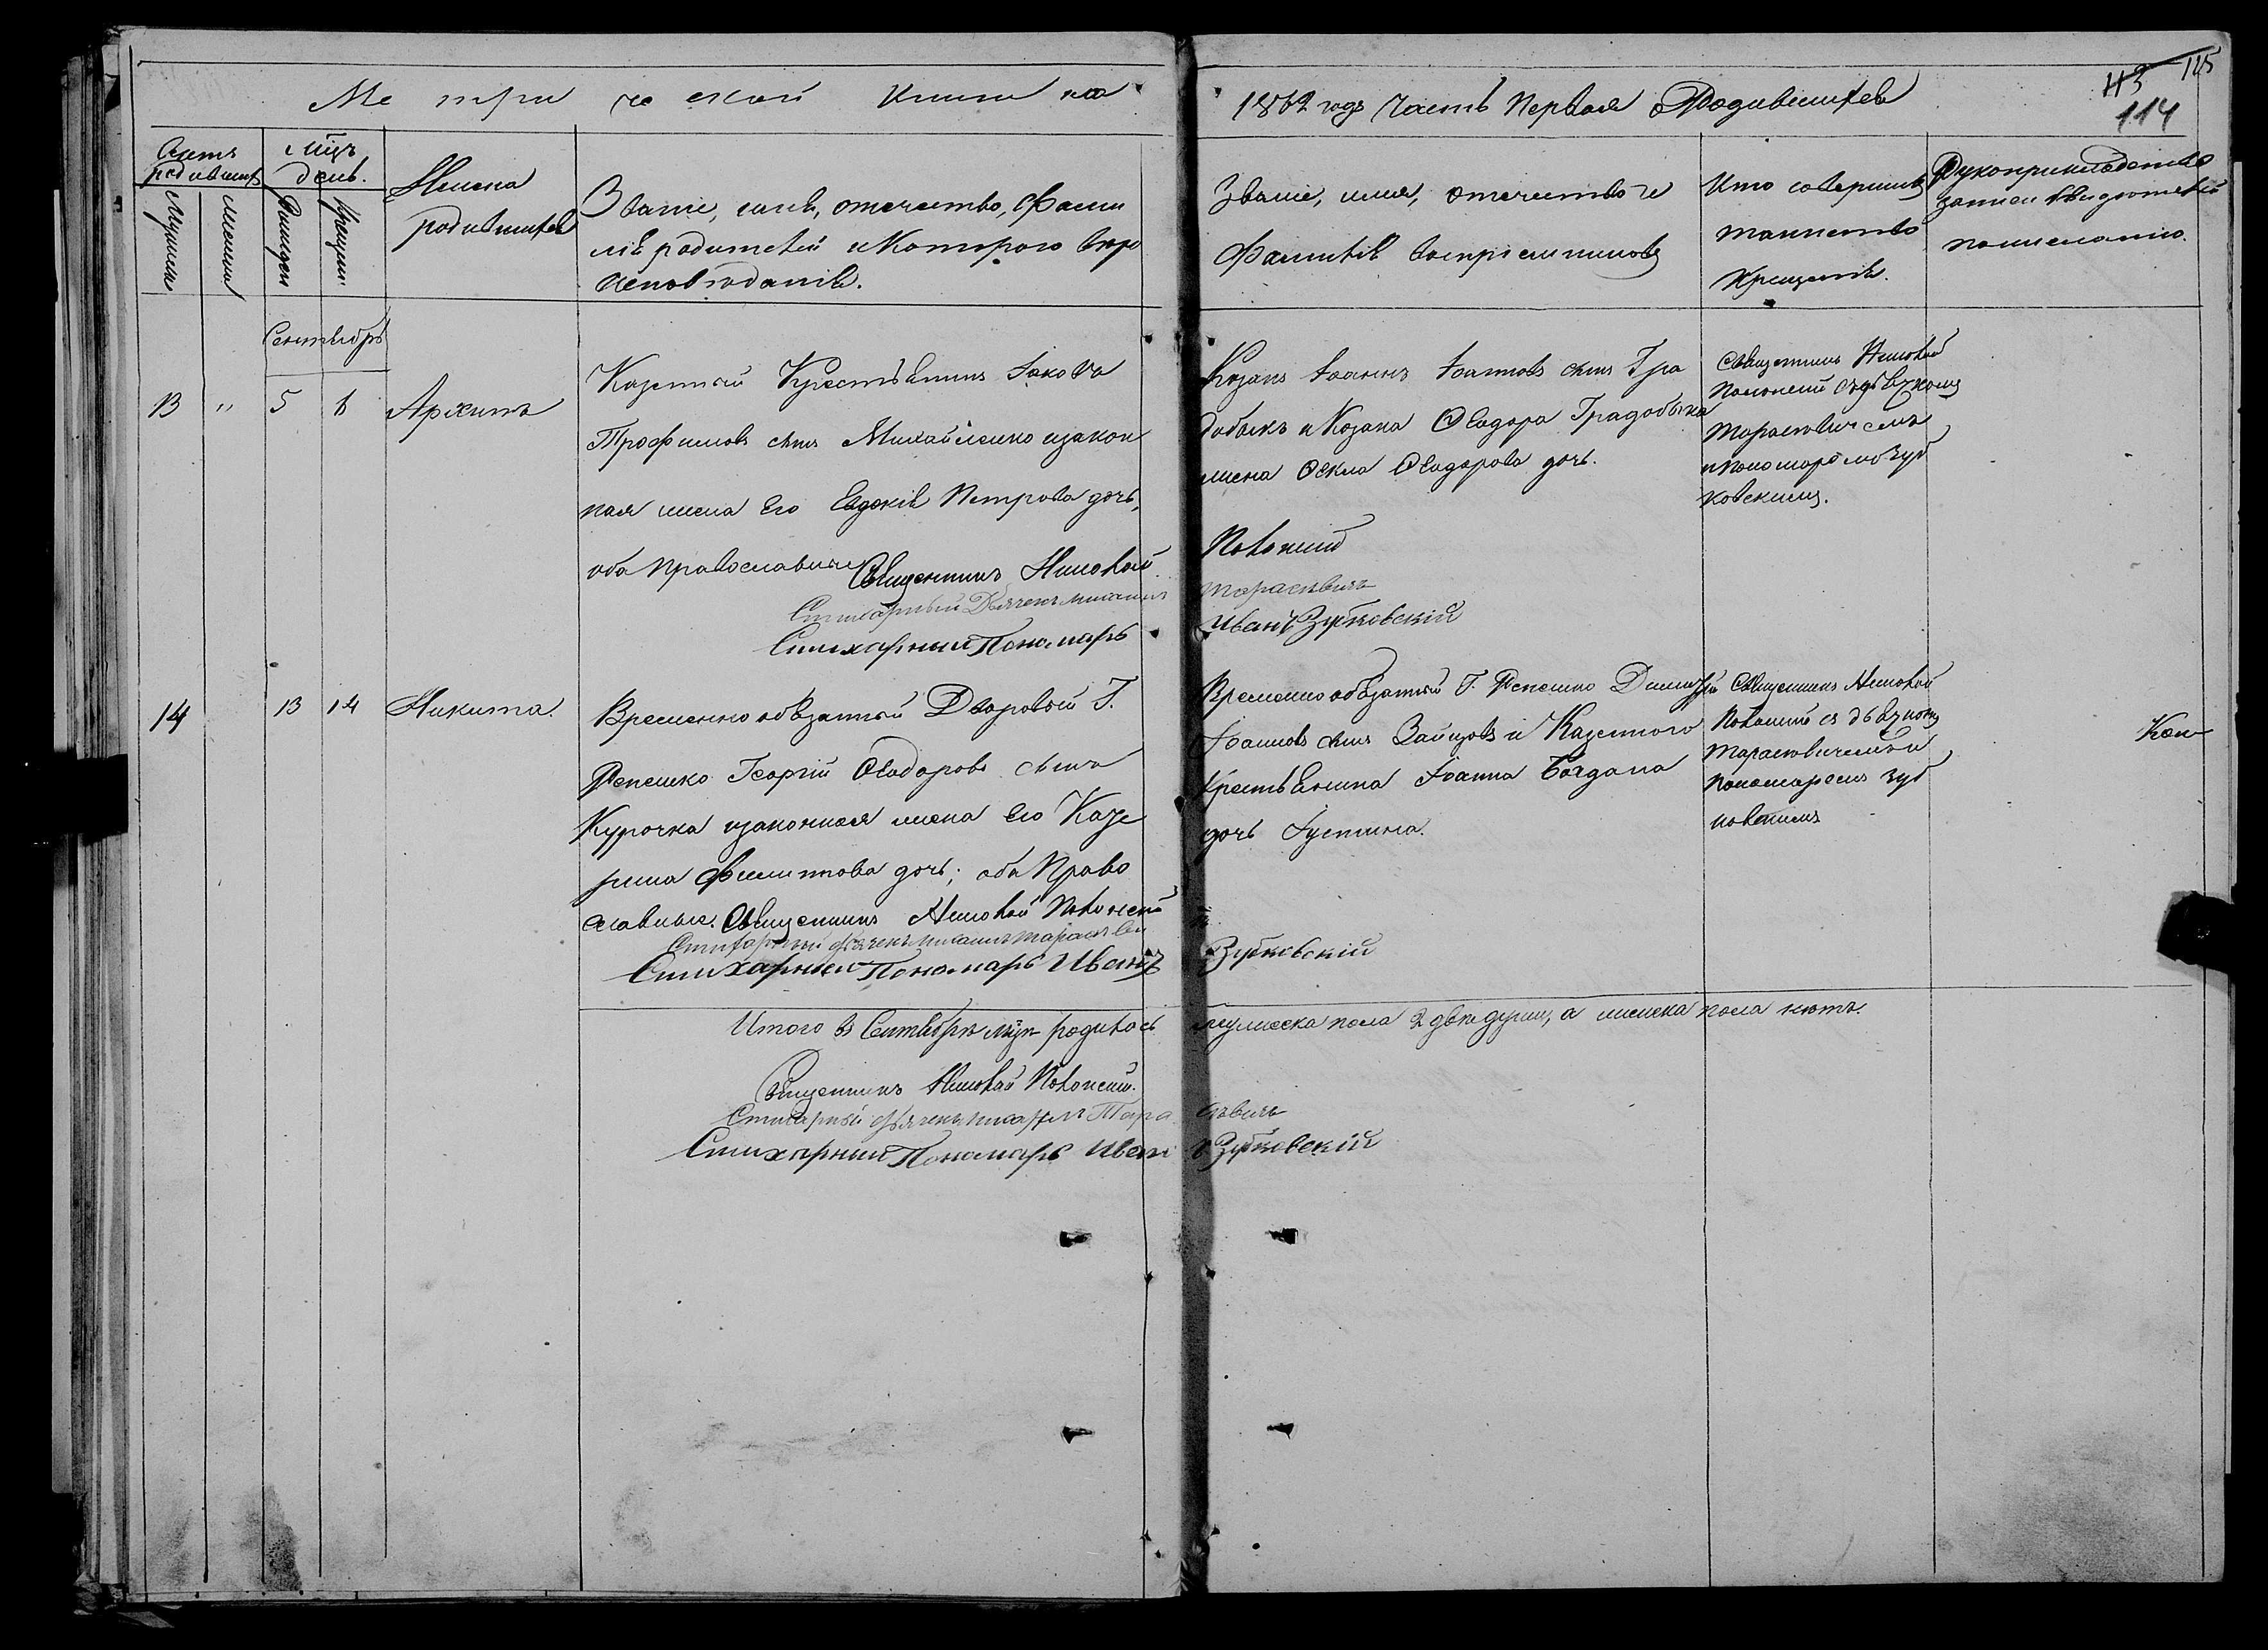 Метрической книги на
1862 годъ Часть Первая о Родившихся
113 115
114
Счетъ родившихъ
Мцъ день.
Мужеска
Женска
Рожден
Крещен
Имена
родившихся
Званіе, имя, отечество, Фами
лія родителей и Которого вѣро
исповѣданія.
Званіе, имя, отечество и
Фамилія воспріемниковъ
Кто совершалъ
таинство
Крещенія.
Рукоприкладство
записи свидѣтелей
по желанію.
Сентябрь
13 " 5 6 Архипъ
Казенный Крестьянинъ Іаковъ
Трофимовъ сынъ Михайленко и закон
ная жена его Евдокія Петрова дочь,
оба Православные
Священникъ Николай
Стихарный Дьячекъ Михаилъ
Стихарный Пономарь
Козакъ Іоаннъ Іоанновъ сынъ Гра
добыкъ и Козака Ѳеодора Градобыка
жена Ѳекла Ѳеодорова дочь.
Полонскій
Тарасѣвичъ
Иванъ Зубковскій
Священникъ Николай
Полонскій съ дьячкомъ
Тарасевичемъ
и пономаремъ Зуб
ковскимъ.
14 13 14 Никита.
Временнообязанный Дворовый Г.
Репешко Георгій Ѳеодоровъ сынъ
Курочка и законная жена его Кате
рина Филиппова дочь; оба Право
славные. Священникъ Николай Полонскій
Стихарный Дьячекъ Михаилъ Тарасѣви
Стихарный Пономарь Иванъ
Временнообязанный Г. Репешко Димитрій
Іоанновъ сынъ Зайцовъ и Казенного
Крестьянина Іоанна Богдана
дочь Іустина.
Зубковскій
Священникъ Николай
Полонскій съ дьячкомъ
Тарасевичемъ и
Пономаремъ Зуб
ковскимъ
Итого въ Сентябрѣ мцѣ родилось
мужеска пола 2 двѣ души, а женска пола нѣтъ.
Священникъ Николай Полонскій.
Стихарный Дьячекъ Михаилъ Тара
сѣвичъ
Стихарный Пономарь Иван
ъ Зубковскій